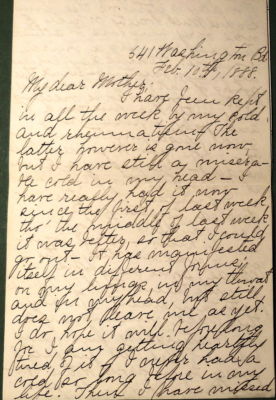 541 Washington Bd
Feb. 10th, 1888.
My dear Mother:
I have been kept
in all the week by my cold
and rheumatism. The
latter however is gone now
but I have still a misera-
ble cold in my head – I
have really had it now
since the first of last week
tho' the middle of last week
it was better, so that I could
go out – It has manifested
itself in different forms,
on my lungs, in my throat
and in my head, but still
does not leave me as yet.
I do hope it will before long
for I am getting heartily
tired of it. I never had a
cold so long before in my
life. Then I have missed